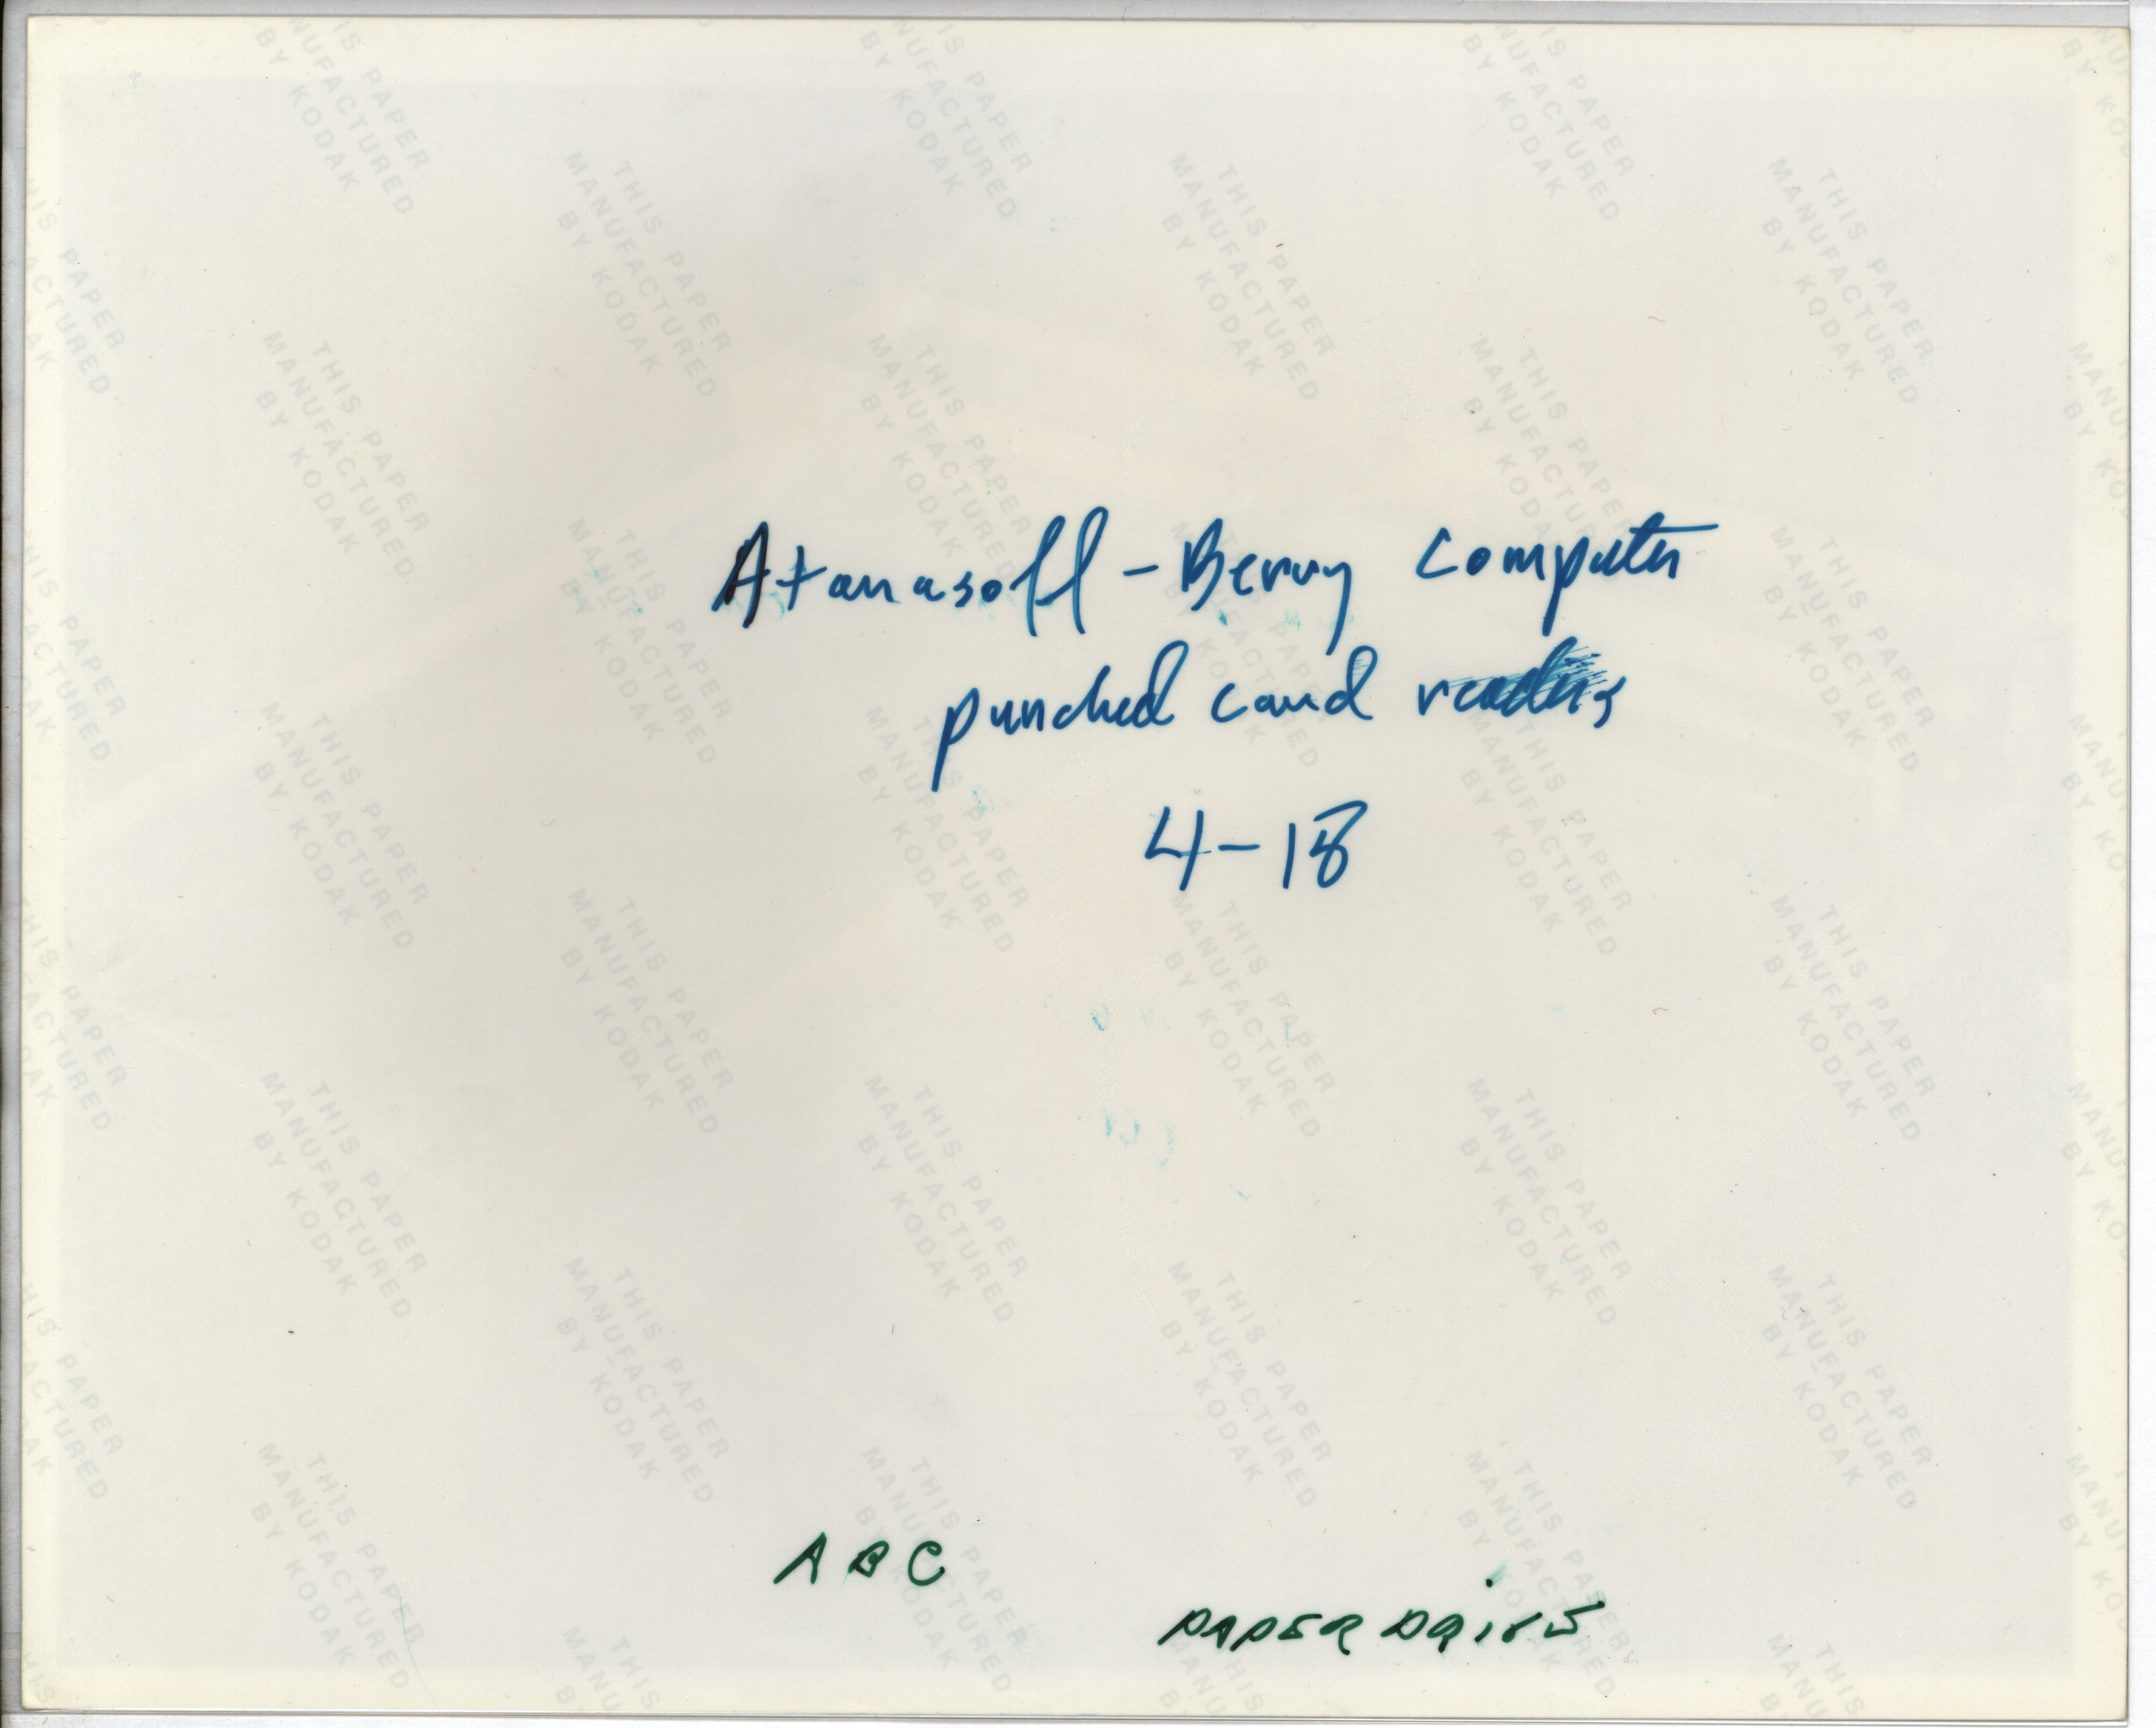 Atanasoff-Berry Computer
punched card readers
4-18
ABC
PAPER DRIVE
THIS PAPER
MANUFACTURED
BY KODAK